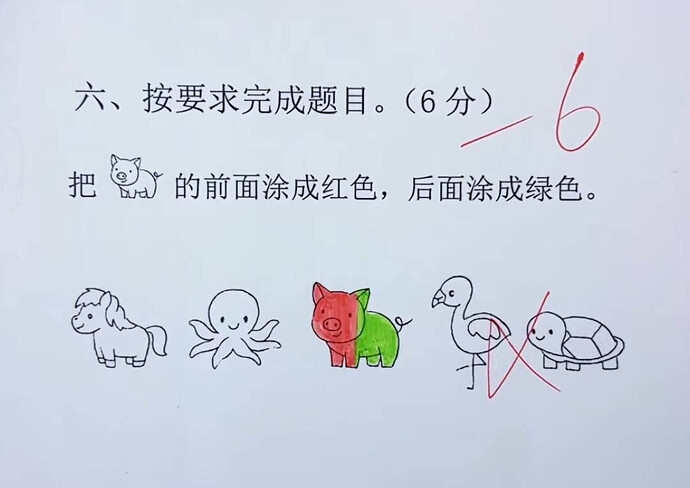 六、按要求完成题目。（6 分）
-6
把的前面涂成红色，后面涂成绿色。